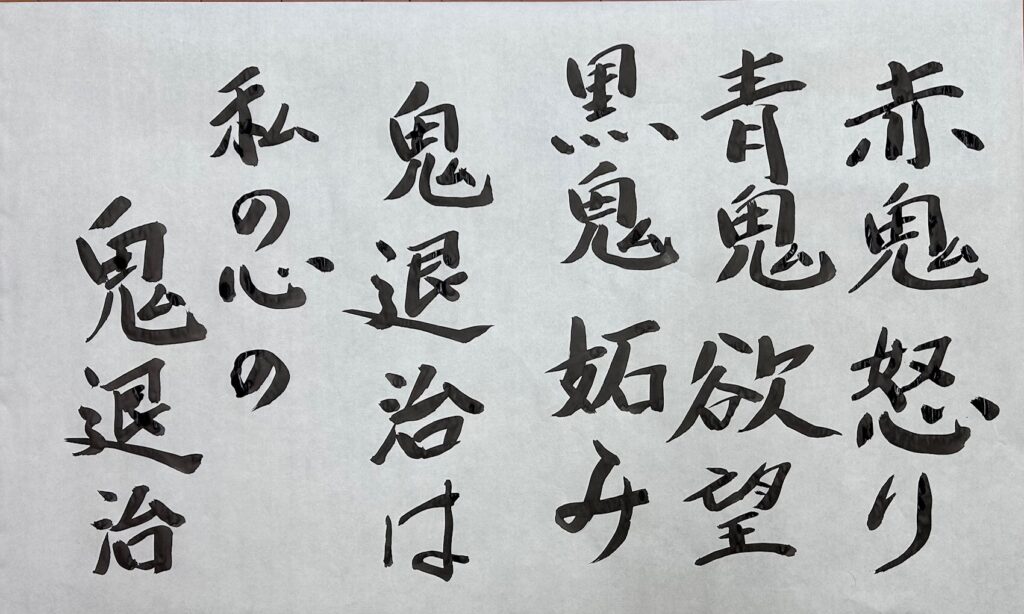 赤鬼 怒り
青鬼 欲望
黒鬼 妬み
鬼退治は
私の心の
鬼退治